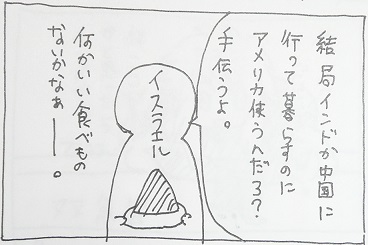 結局インドか中国に
行って暮らすのに
アメリカ使うんだろ?
手伝うよ。
イスラエル
何かいい食べもの
ないかなぁー。